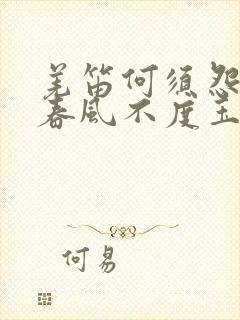 羌笛何须怨
春风不度玉
何易